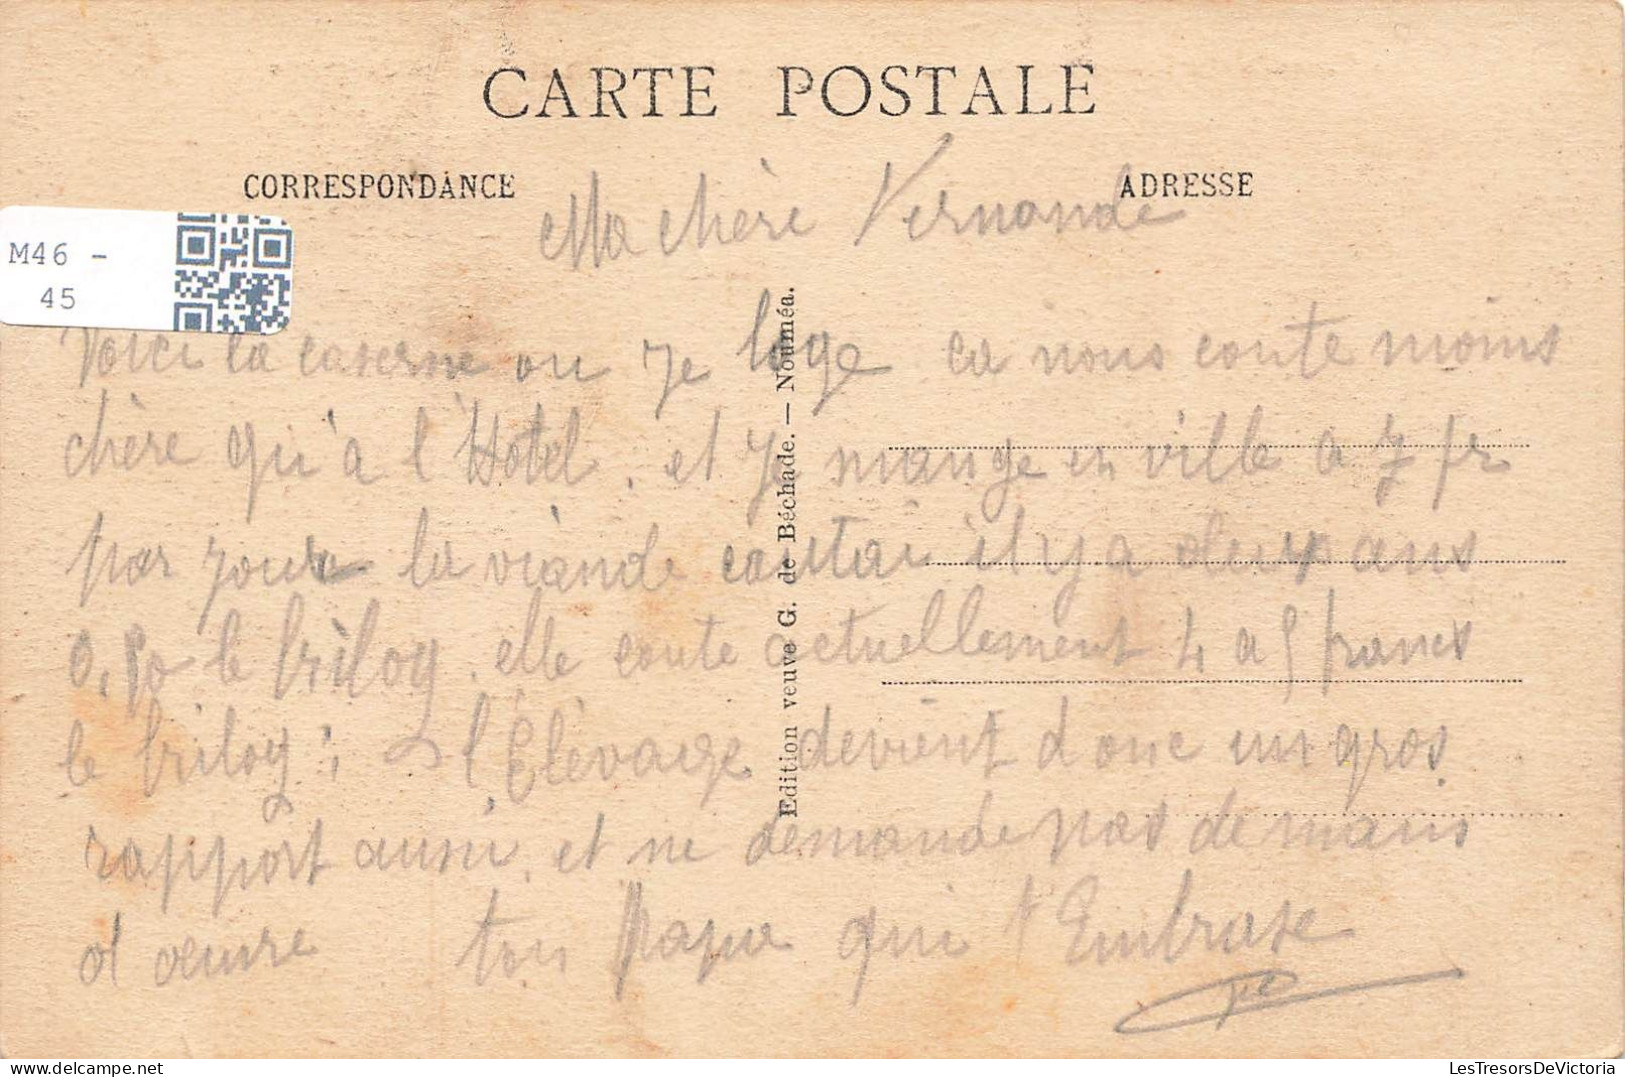 CARTE POSTALE
CORRESPONDANCE
ADRESSE
M46 -
45
Ma chère Fernande
Voici la caserne ou je loge ca nous coute moins
chère qu'à l'Hotel. et je mange en ville a 7 fr
par jour la viande coutai il y a deux ans
0,50 le kilog. elle coute actuellement 4 a 5 francs
le kilog; l'Élevage devient donc un gros
rapport aussi et ne demande pas de mains
d oeuvre ton Papa qui t'Embrase
Edition veuve G. de Béchade. — Nouméa.
LesTresorsDeVictoria